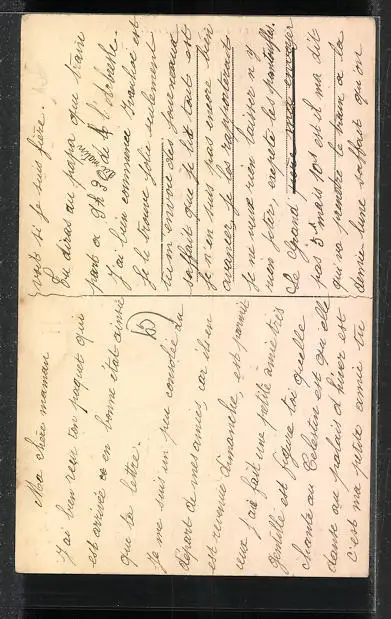 Ma chère maman
J'ai bien reçu ton paquet qui
est arrivée ce en bonne état ainsie
que ta lettre.
Je me suis un peu consolée du
départ de mes amies car ils en
est revenus dimanche, est parmie
eux j'ai fait une petite amie très
gentille est figure toi quelle
chante au Celestins est qu'elle
danse au palais d'hiver est
c'est ma petite amie tu
vois si je suis fière.
Tu diras au papa que train
part a 9h3 de l'Arbresle.
J'ai bien commencé Ivanhoé est
je le trouve jolie seulement
tu m'envoie des journeaux
il faut que je lit tout est
je n'en suis pas encore bien
avancer je les rapporterais
Je ne veux rien laisser n'y
rien jeter, excepte les pantoufles.
Le Grand
pas 5s mais 10s est il ma dit
qui va prendre le train a la
dernière lune il faut qu'on